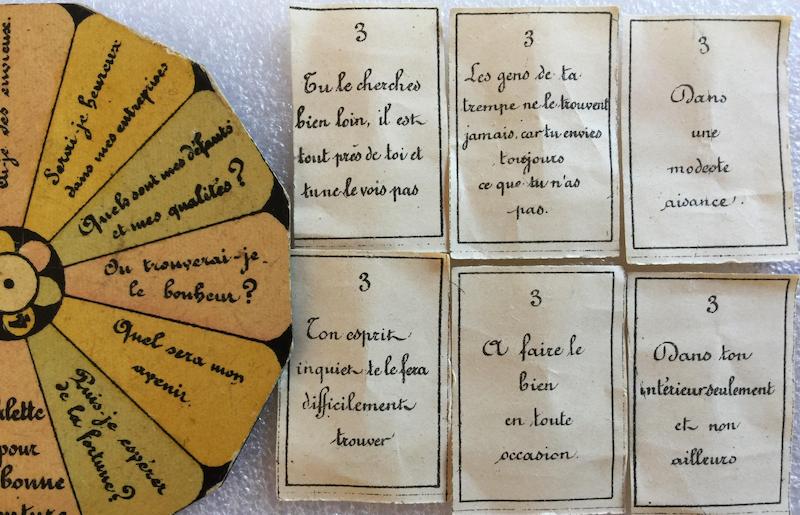 Serai-je heureux
dans mes entreprises
Quels sont mes défauts
et mes qualités?
Ou trouverai-je
le bonheur?
Quel sera mon
avenir.
Puis je espérer
de la fortune?
pour
bonne
3
Tu le cherches
bien loin, il est
tout près de toi et
tu ne le vois pas
3
Les gens de ta
trempe ne le trouvent
jamais, car tu envies
toujours
ce que tu n'as
pas.
3
Dans
une
modeste
aisance.
3
Ton esprit
inquiet te le fera
difficilement
trouver
3
A faire le
bien
en toute
occasion.
3
Dans ton
intérieur seulement
et non
ailleurs